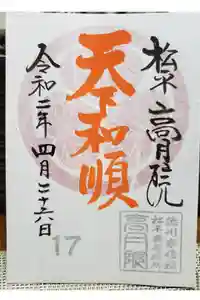 松平 高月院
天下和順
令和二年 四月二十六日
17
高月院